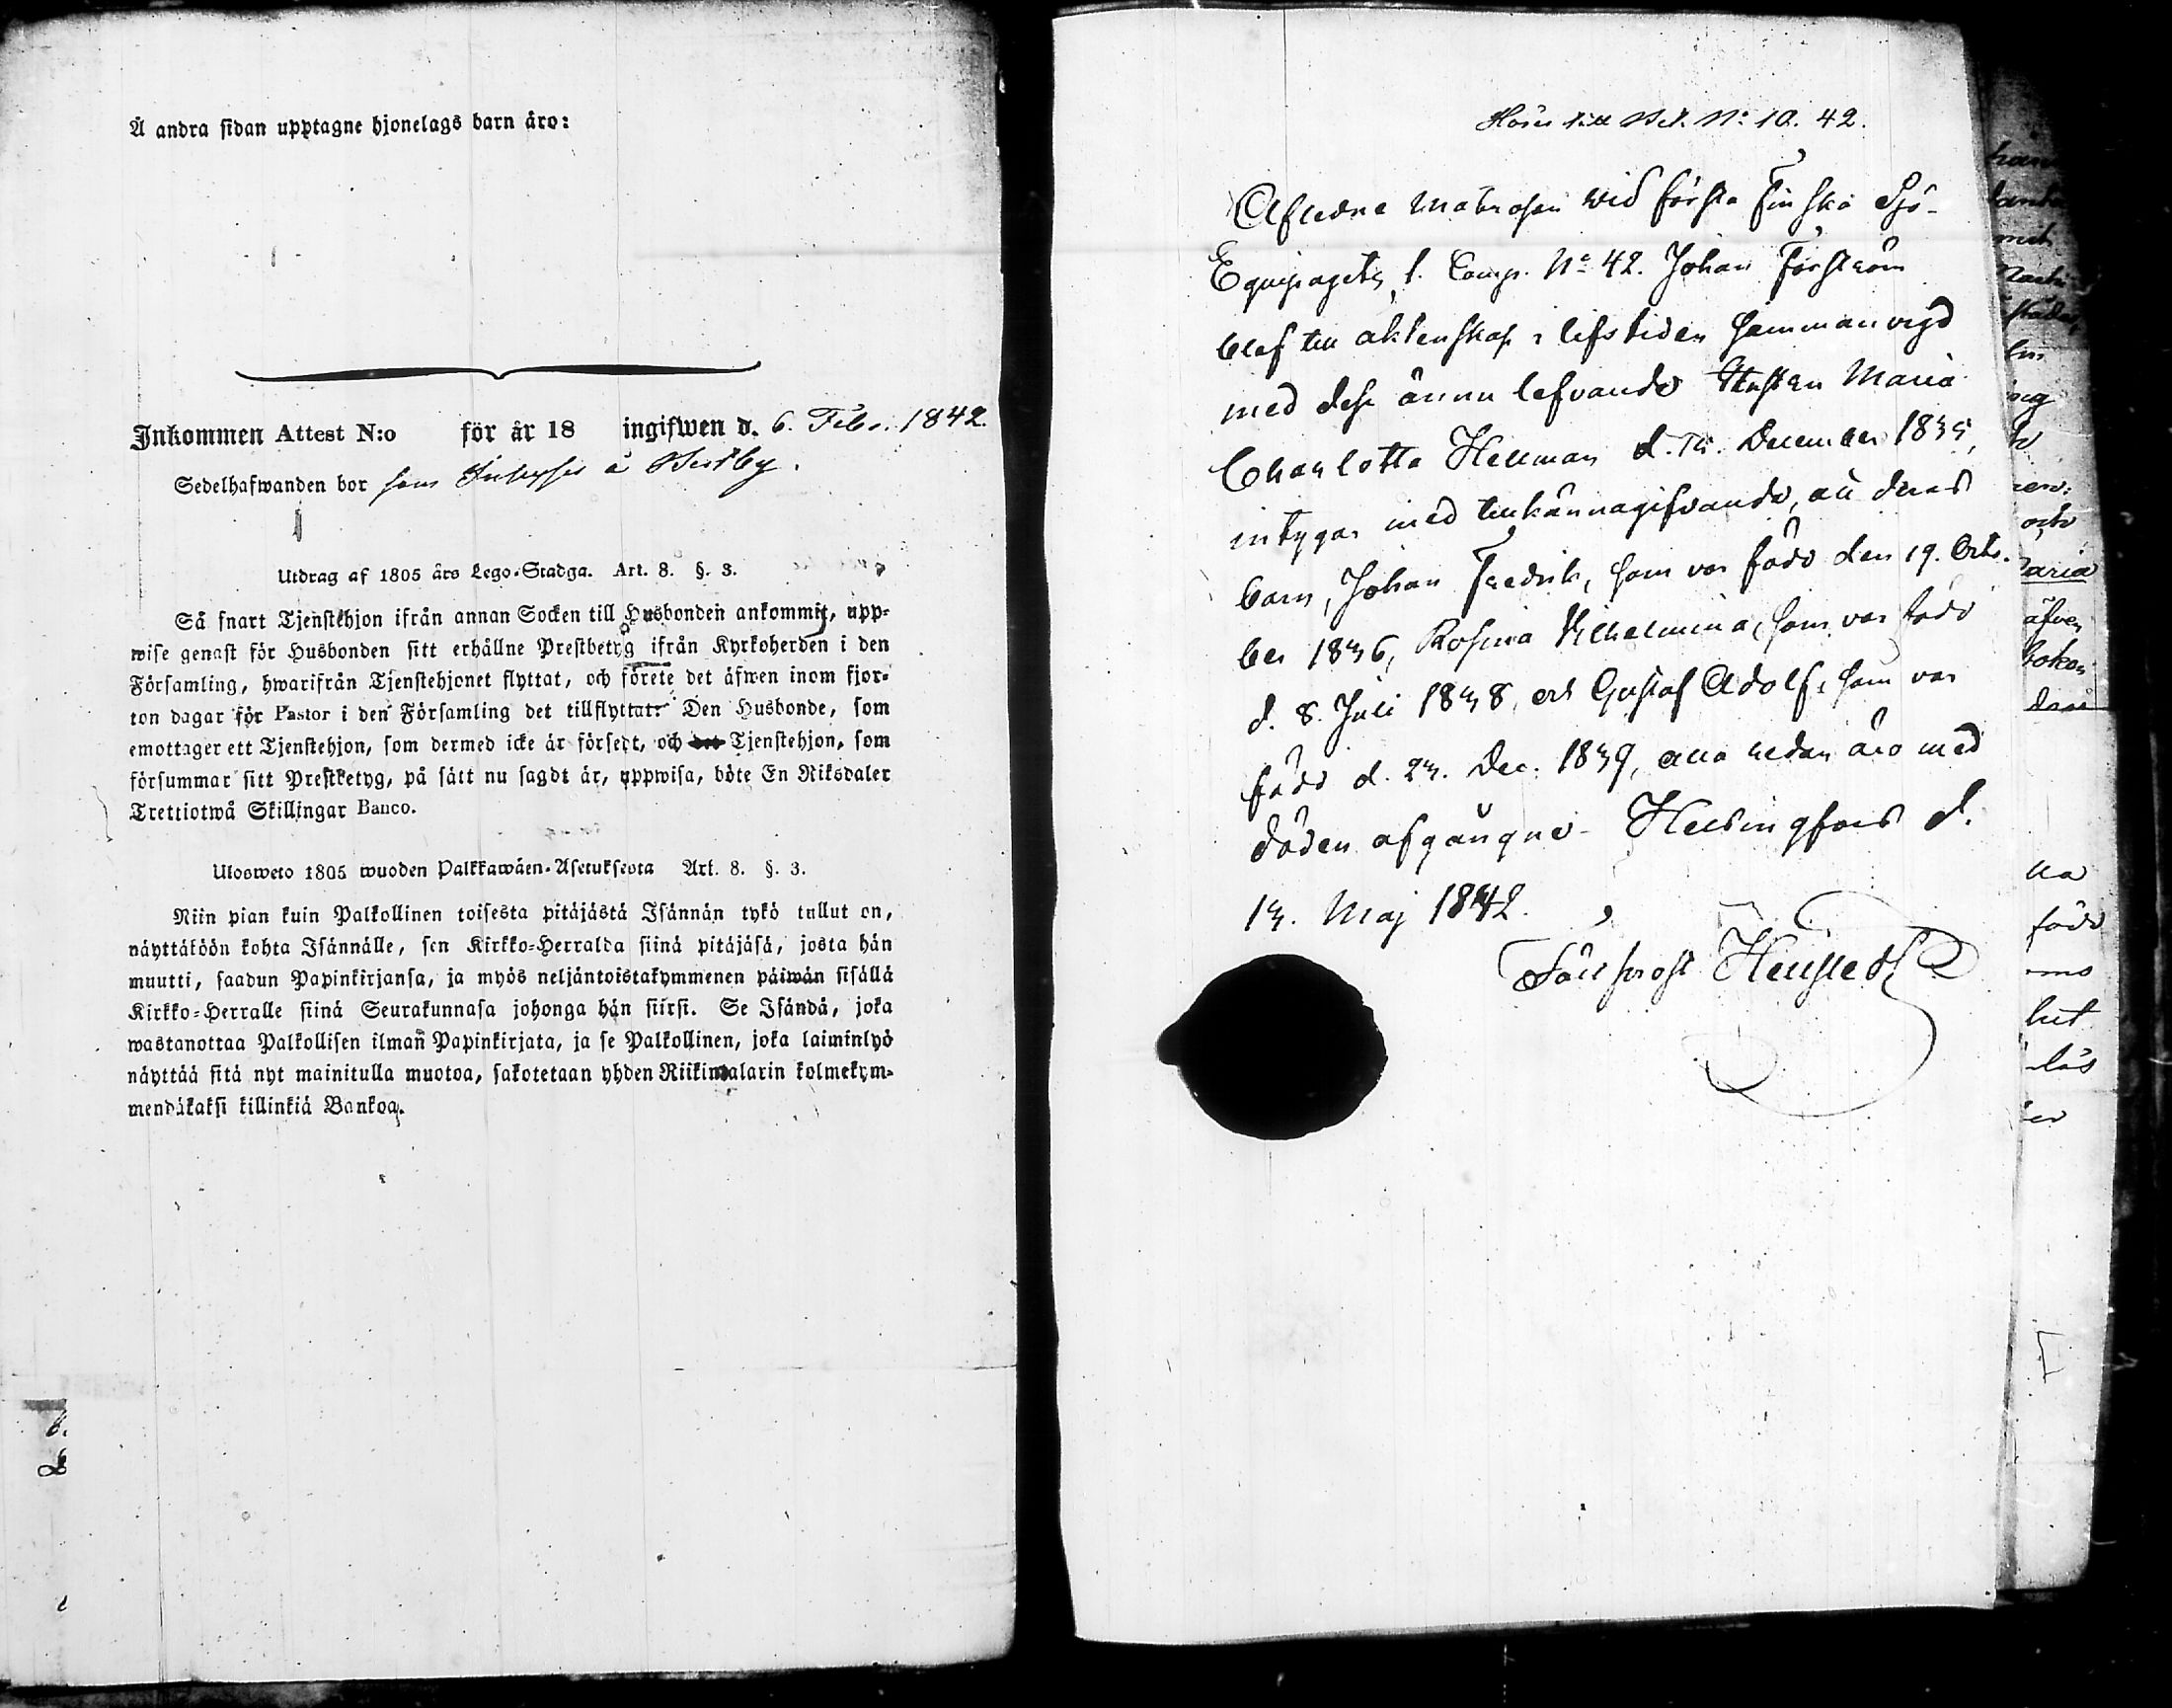 Å andra sidan upptagne hjonelags barn äro:
Inkommen Attest N:o för år 18 ingifwen d. 6. Febr. 1842.
Sedelhafwanden bor som Inhyses å
Utdrag af 1805 års Lego-Stadga. Art. 8. §. 3.
Så snart Tjenstehjon ifrån annan Socken till Husbonden ankommit, upp-
wise genast för Husbonden sitt erhållne Prestbetyg ifrån Kyrkoherden i den
Församling, hwarifrån Tjenstehjonet flyttat, och förete det äfwen inom fjor-
ton dagar för Pastor i den Församling det tillflyttat. Den Husbonde, som
emottager ett Tjenstehjon, som dermed icke är försedt, och det Tjenstehjon, som
försummar sitt Prestbetyg, på sätt nu sagdt är, uppwisa, böte En Riksdaler
Trettiotwå Skillingar Banco.
Ulosweto 1805 wuoden Palkkawäen-Asetuksesta Art. 8. §. 3.
Niin pian kuin Palkollinen toisesta pitäjästä Isännän tykö tullut on,
näyttäköön kohta Isännälle, sen Kirkko-Herralda siinä pitäjäsä, josta hän
muutti, saadun Papinkirjansa, ja myös neljäntoistakymmenen päiwän sisällä
Kirkko-Herralle siinä Seurakunnasa johonga hän siirsi. Se Isändä, joka
wastanottaa Palkollisen ilman Papinkirjata, ja se Palkollinen, joka laiminlyö
näyttää sitä nyt mainitulla muotoa, sakotetaan yhden Riikintalarin kolmekym-
mendäkaksi killinkiä Bankoa.
Hörer till Bet. N: 10. 42.
Aflidne Matrosen wid första Finska Sjö-
Equipagets 1. Comp. No 42. Johan Forsström
blef till äktenskap i lifstiden sammanvigd
med dess ännu lefvande Hustru Maria
Charlotta Hellman d. December 1835,
intygas med tillkännagifvande, att deras
barn, Johan Fredrik, som var född den 19. Octo-
ber 1836, Rosina Vilhelmina, som var född
d. 8. Juli 1838, och Gustaf Adolf, som var
född d. 23. Dec. 1839, alla redan äro med
döden afgångne. Helsingfors d.
13. Maj 1842.
Fältprost